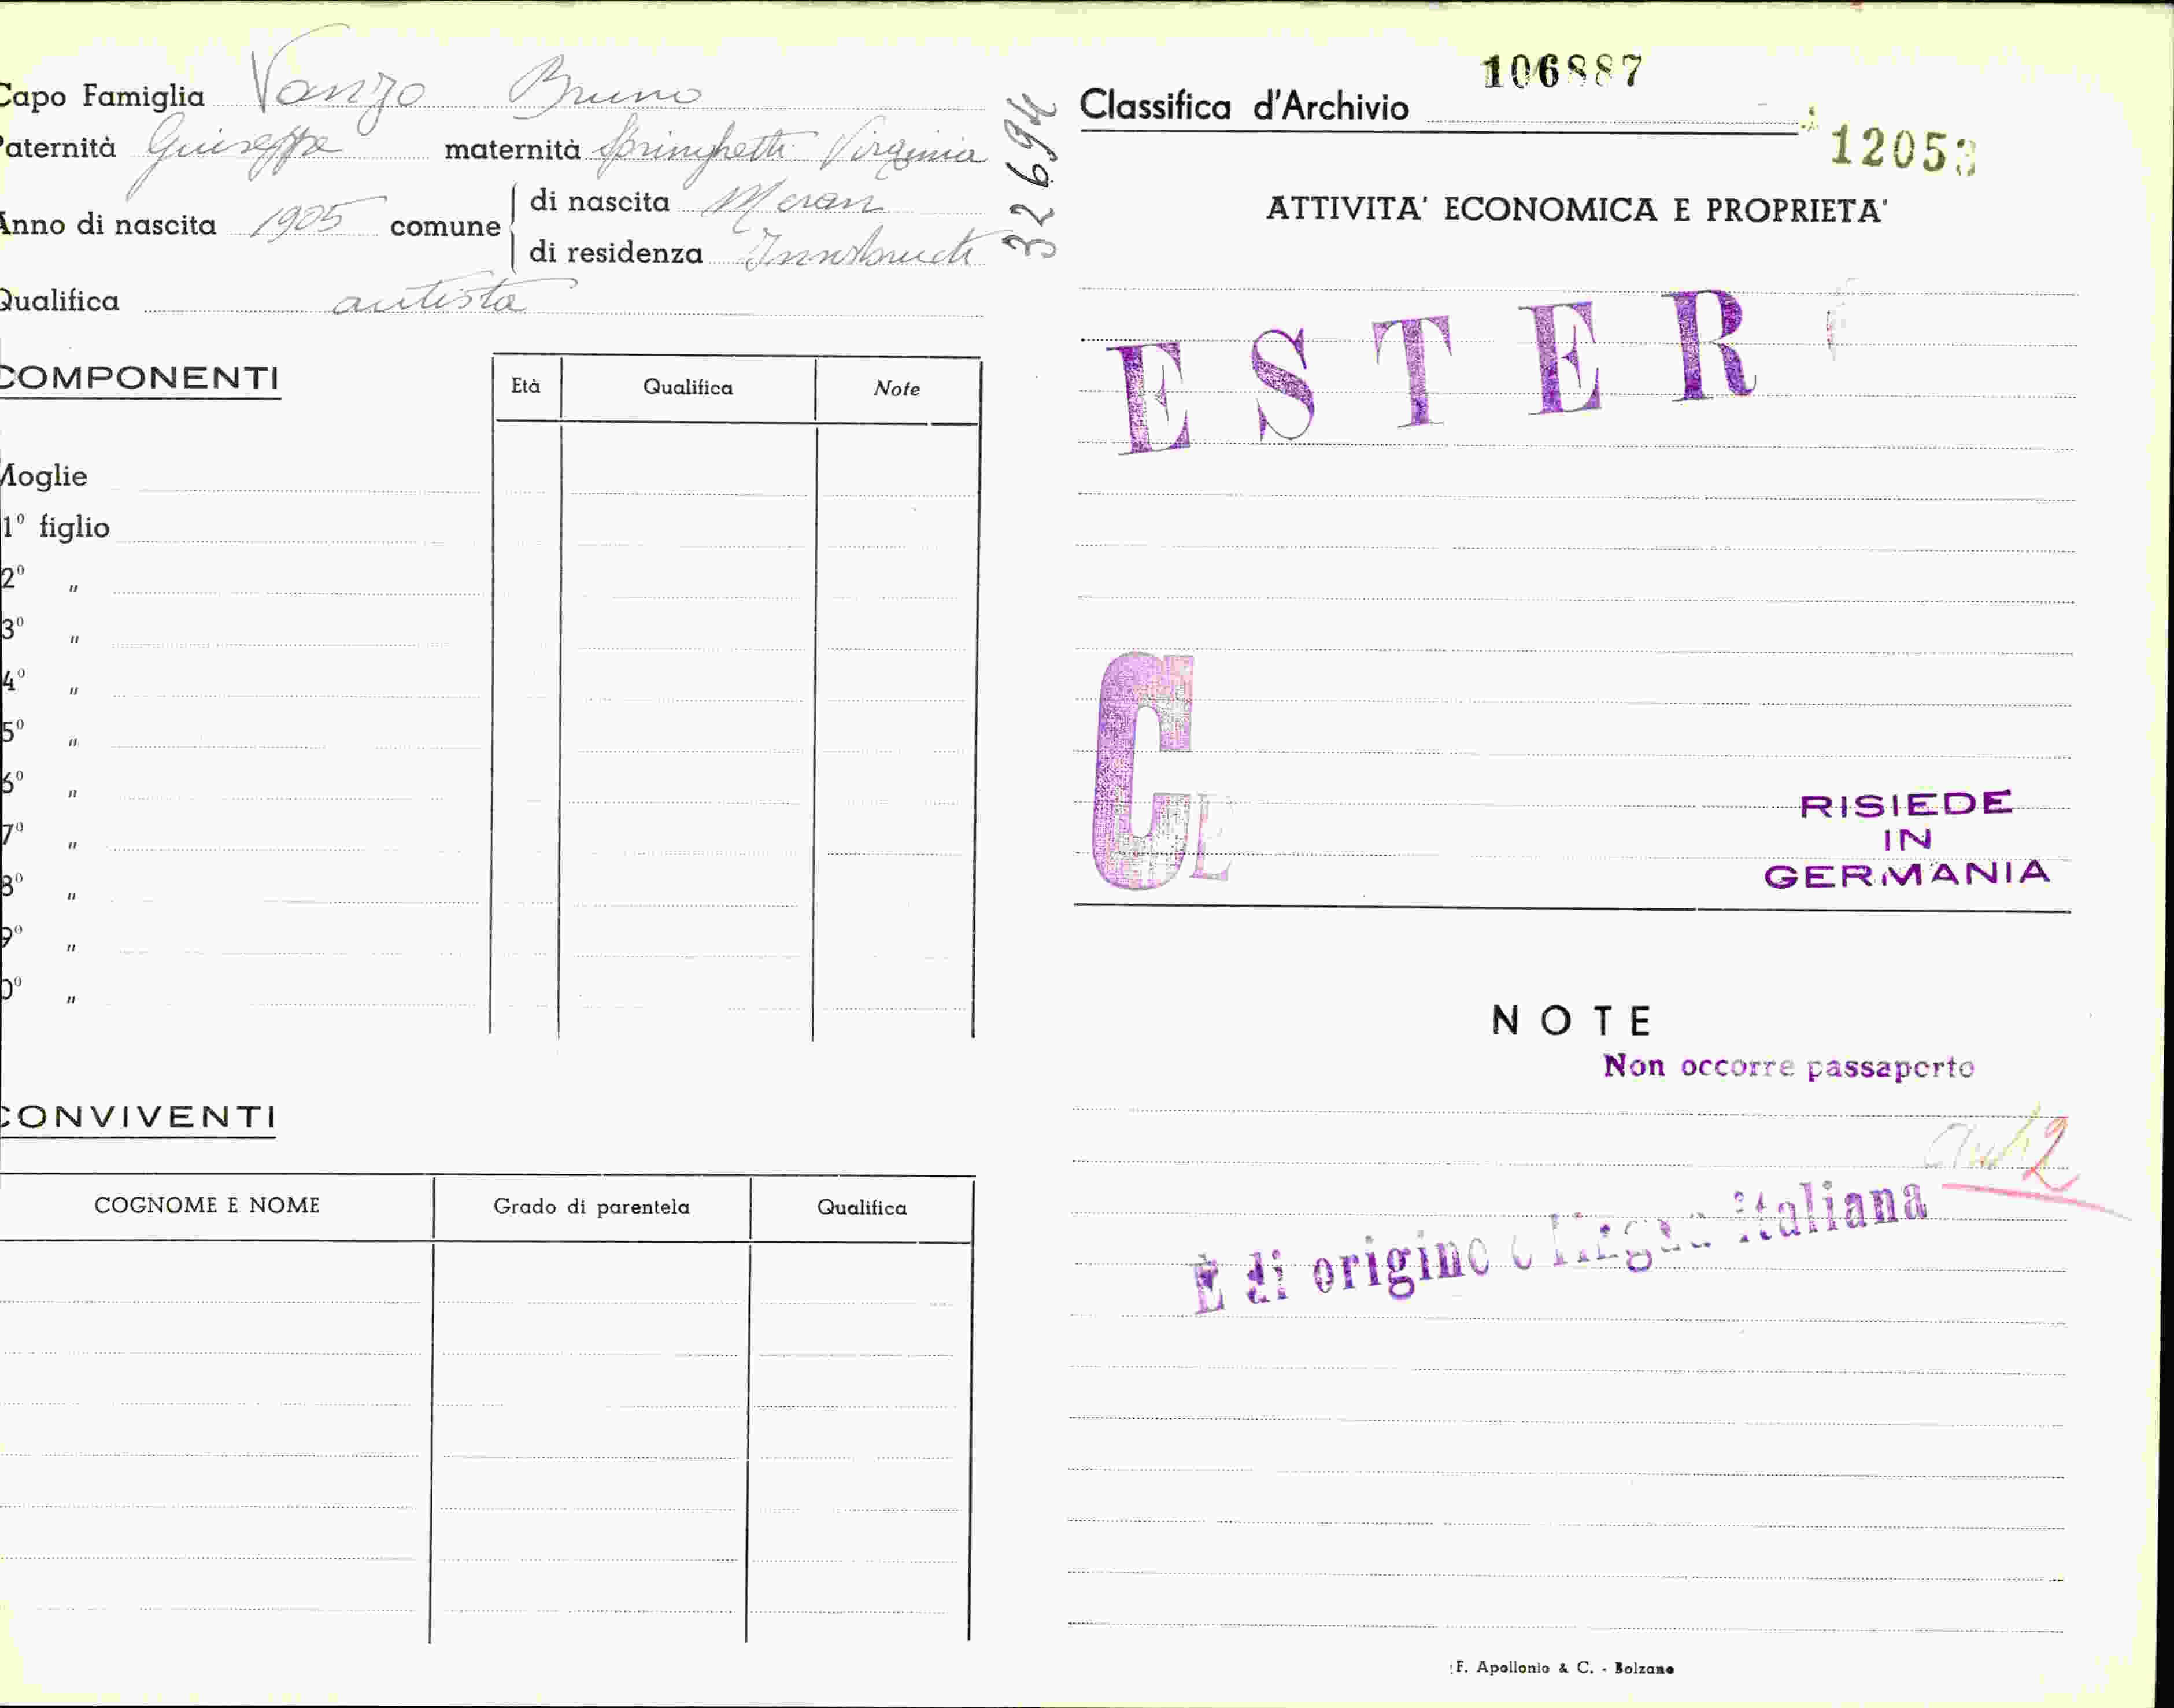 Capo Famiglia Vanzo Bruno
Paternità Giuseppe maternità Springhetti Virginia
Anno di nascita 1905 comune di nascita Meran
di residenza Innsbruck
Qualifica autista
COMPONENTI
Età Qualifica Note
Moglie
1º figlio
2º "
3º "
4º "
5º "
6º "
7º "
8º "
9º "
0º "
CONVIVENTI
COGNOME E NOME Grado di parentela Qualifica
32694
Classifica d'Archivio 106887
12053
ATTIVITA' ECONOMICA E PROPRIETA'
ESTER
C
RISIEDE
IN
GERMANIA
NOTE
Non occorre passaporto
2
È di origine e lingua italiana
F. Apollonio & C. - Bolzano